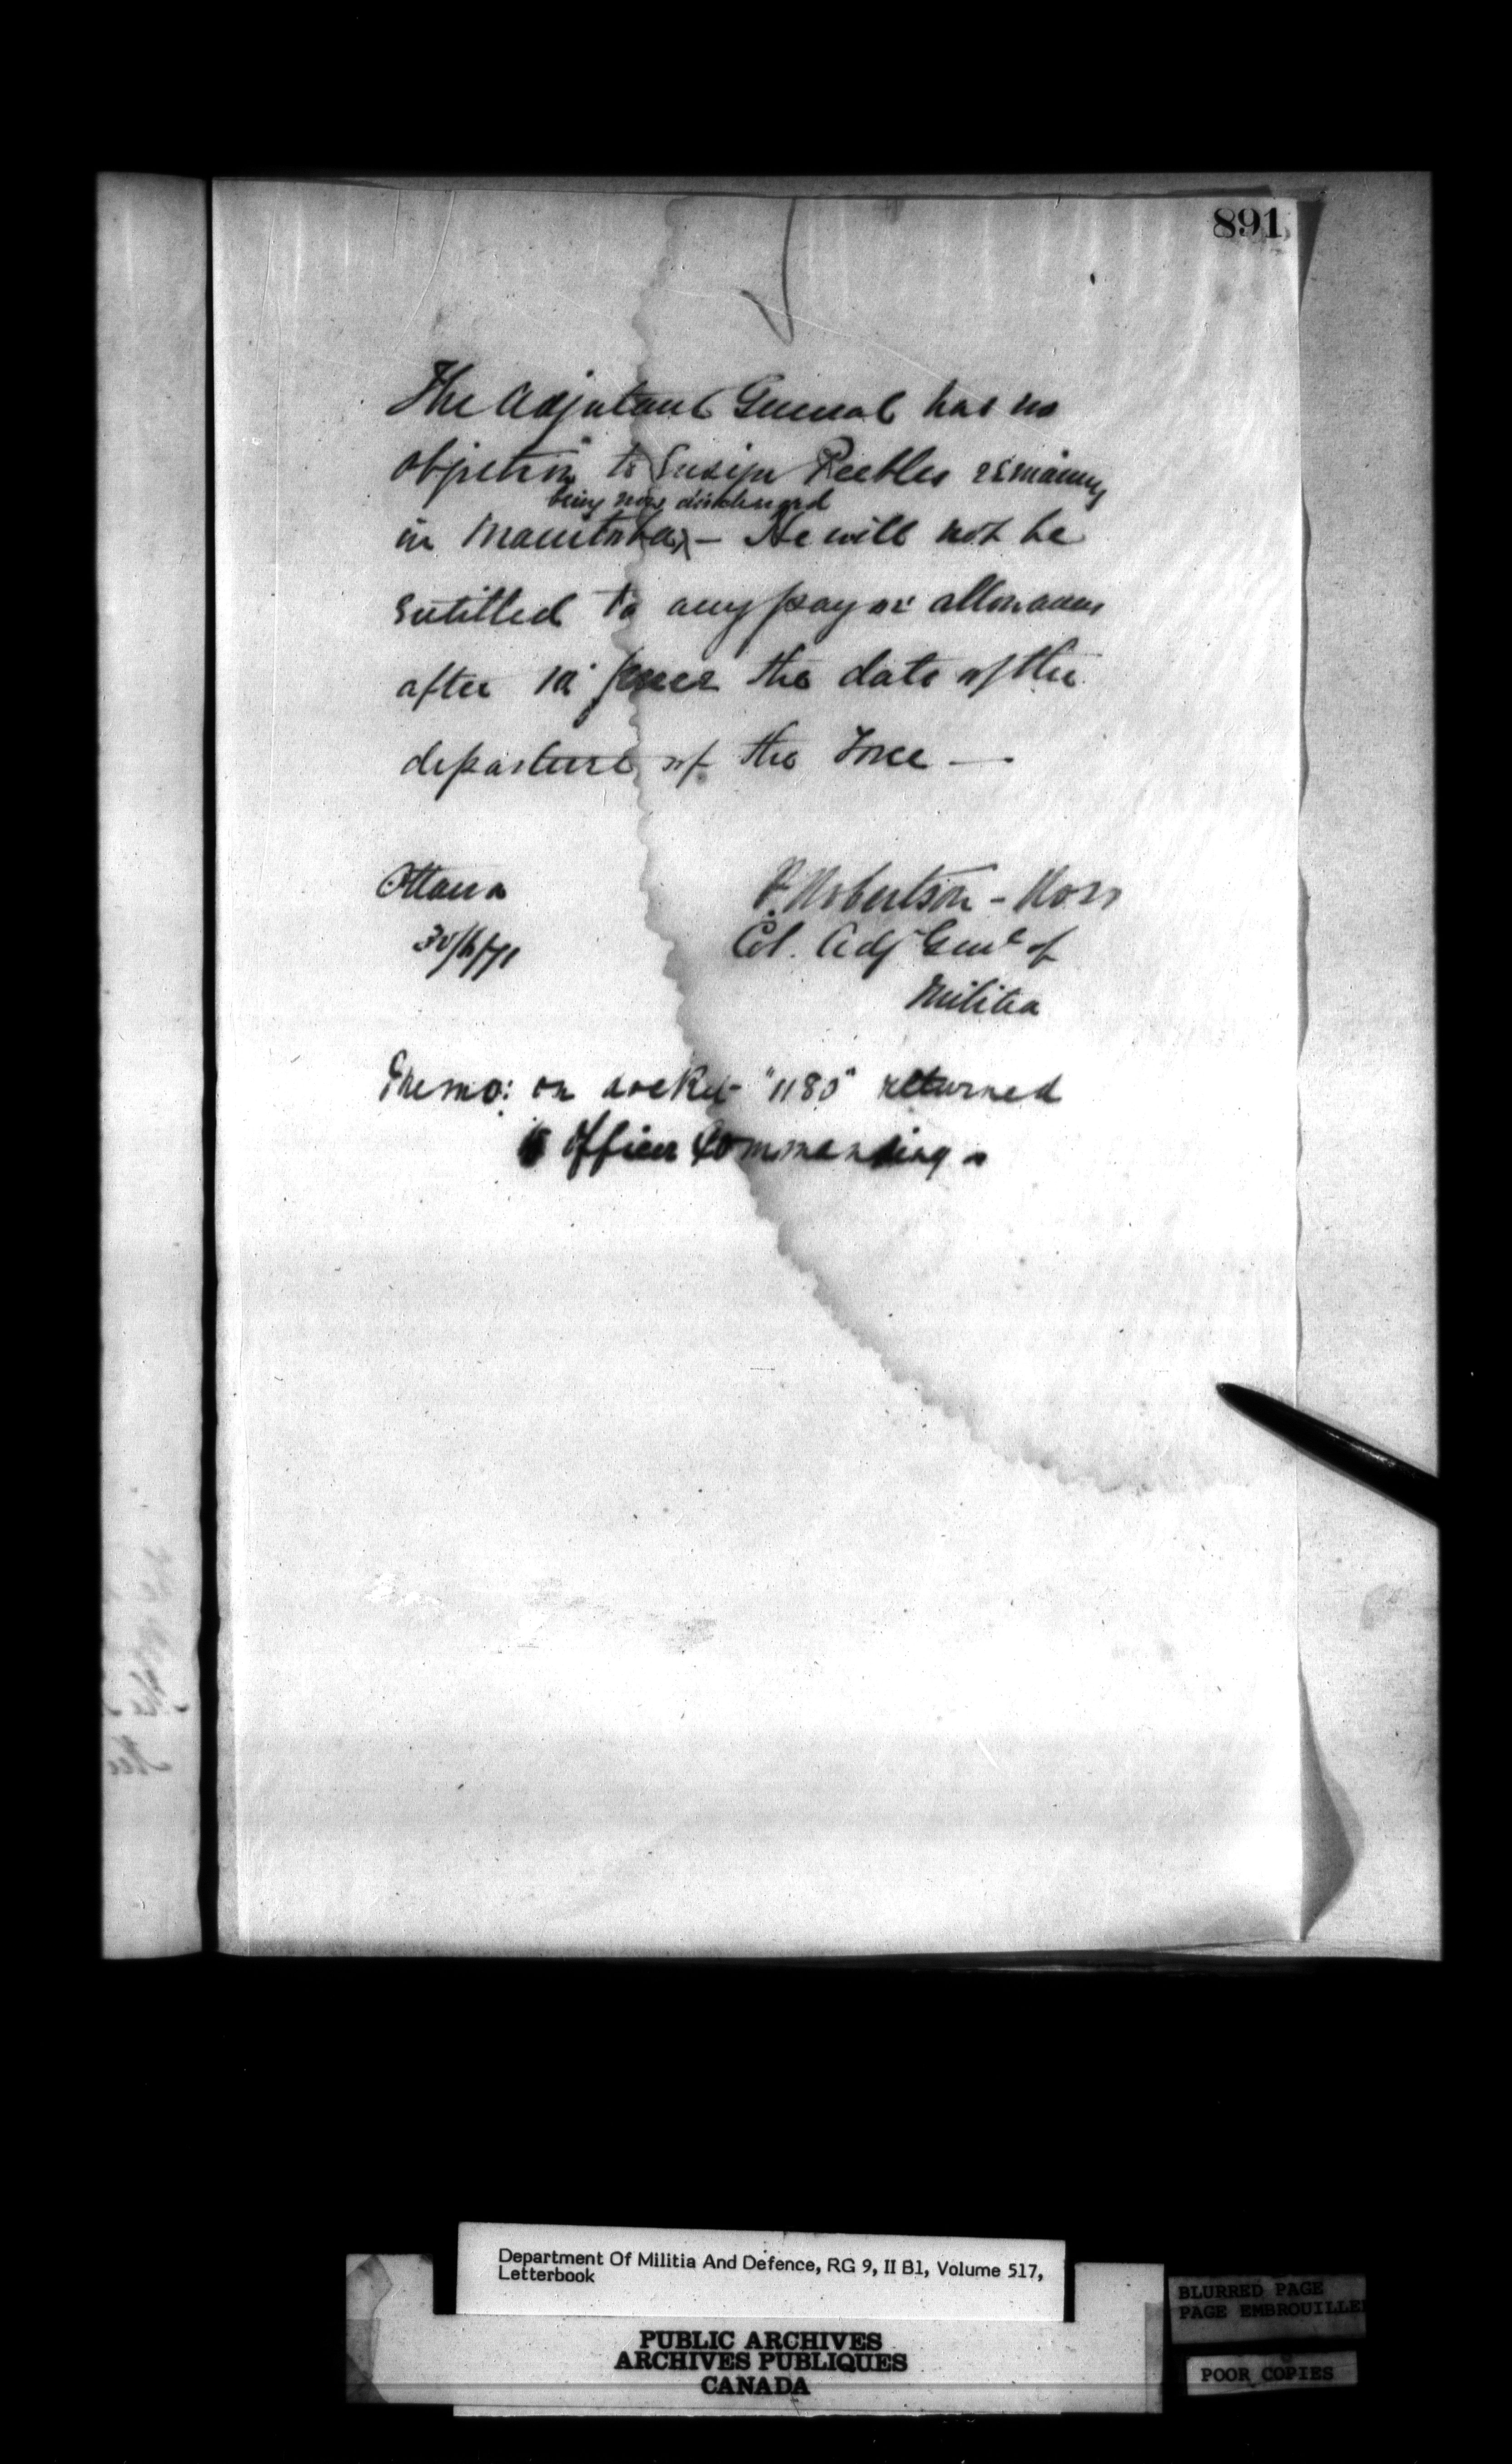 891
The Adjutant General has no
objection to Ensign Peebles remaining
being now discharged
in Manitoba, – He will not be
entitled to any pay or allowances
after 1st June the date of the
departure of the Force —
Ottawa
P. Robertson-Ross
Col. Adj Genl of
Militia
Memo: on docket "1180" returned
to Officer Commanding
Department Of Militia And Defence, RG 9, II B1, Volume 517,
Letterbook
PUBLIC ARCHIVES
ARCHIVES PUBLIQUES
CANADA
BLURRED PAGE
PAGE EMBROUILLE
POOR COPIES